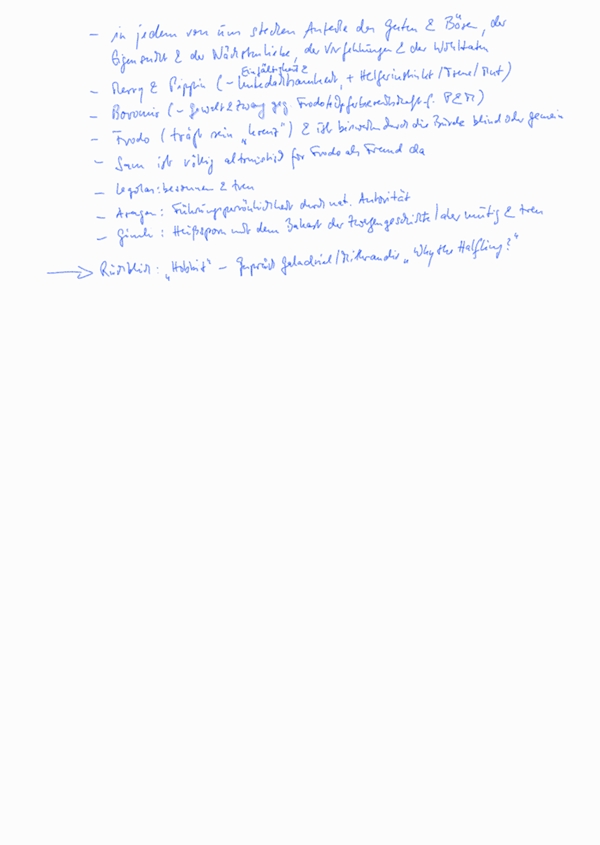 - in jedem von uns stecken Anteile des Guten & Bösen, der
Eigensucht & der Nächstenliebe, der Verfehlungen & der Wohltaten
Einfältigkeit &
- Merry & Pippin (- Unbedachtsamkeit, + Helferinstinkt / Treue / Mut)
- Boromir (- Gewalt & Zwang geg. Frodo + Opferbereitschaft f. P&M)
- Frodo (trägt sein „Kreuz") & ist bisweilen durch die Bürde blind oder gemein
- Sam ist völlig altruistisch für Frodo als Freund da
- Legolas: besonnen & treu
- Aragorn: Führungspersönlichkeit durch nat. Autorität
- Gimli: Heißsporn mit dem Ballast der Zwergengeschichte / aber mutig & treu
→ Rückblick: „Hobbit" - Gespräch Galadriel / Mithrandir „Why the Halfling?"